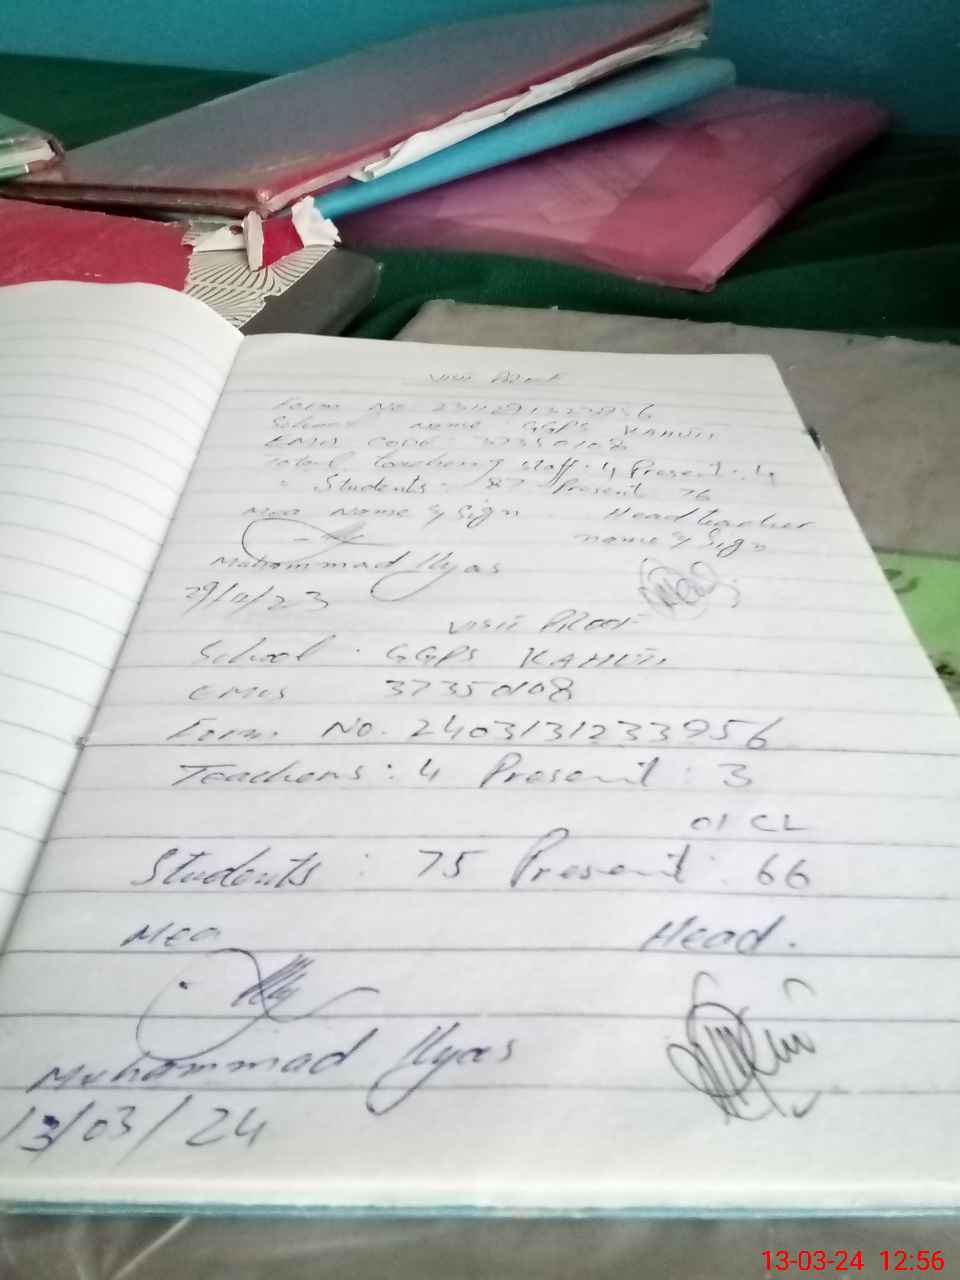 VISIT PROOF
Form No. 2311291323956
School Name : GGPS KAHUTI
EMIS CODE : 37350108
Total teaching staff : 4 Present : 4
" Students : 87 Present 76
Mea Name & Sign Headteacher
name & Sign
Muhammad Ilyas
29/11/23
VISIT PROOF
School : GGPS KAHUTI
EMIS 37350108
Form No. 2403131233956
Teachers : 4 Present : 3
01 CL
Students : 75 Present : 66
MEA Head.
Muhammad Ilyas
13/03/24
13-03-24 12:56